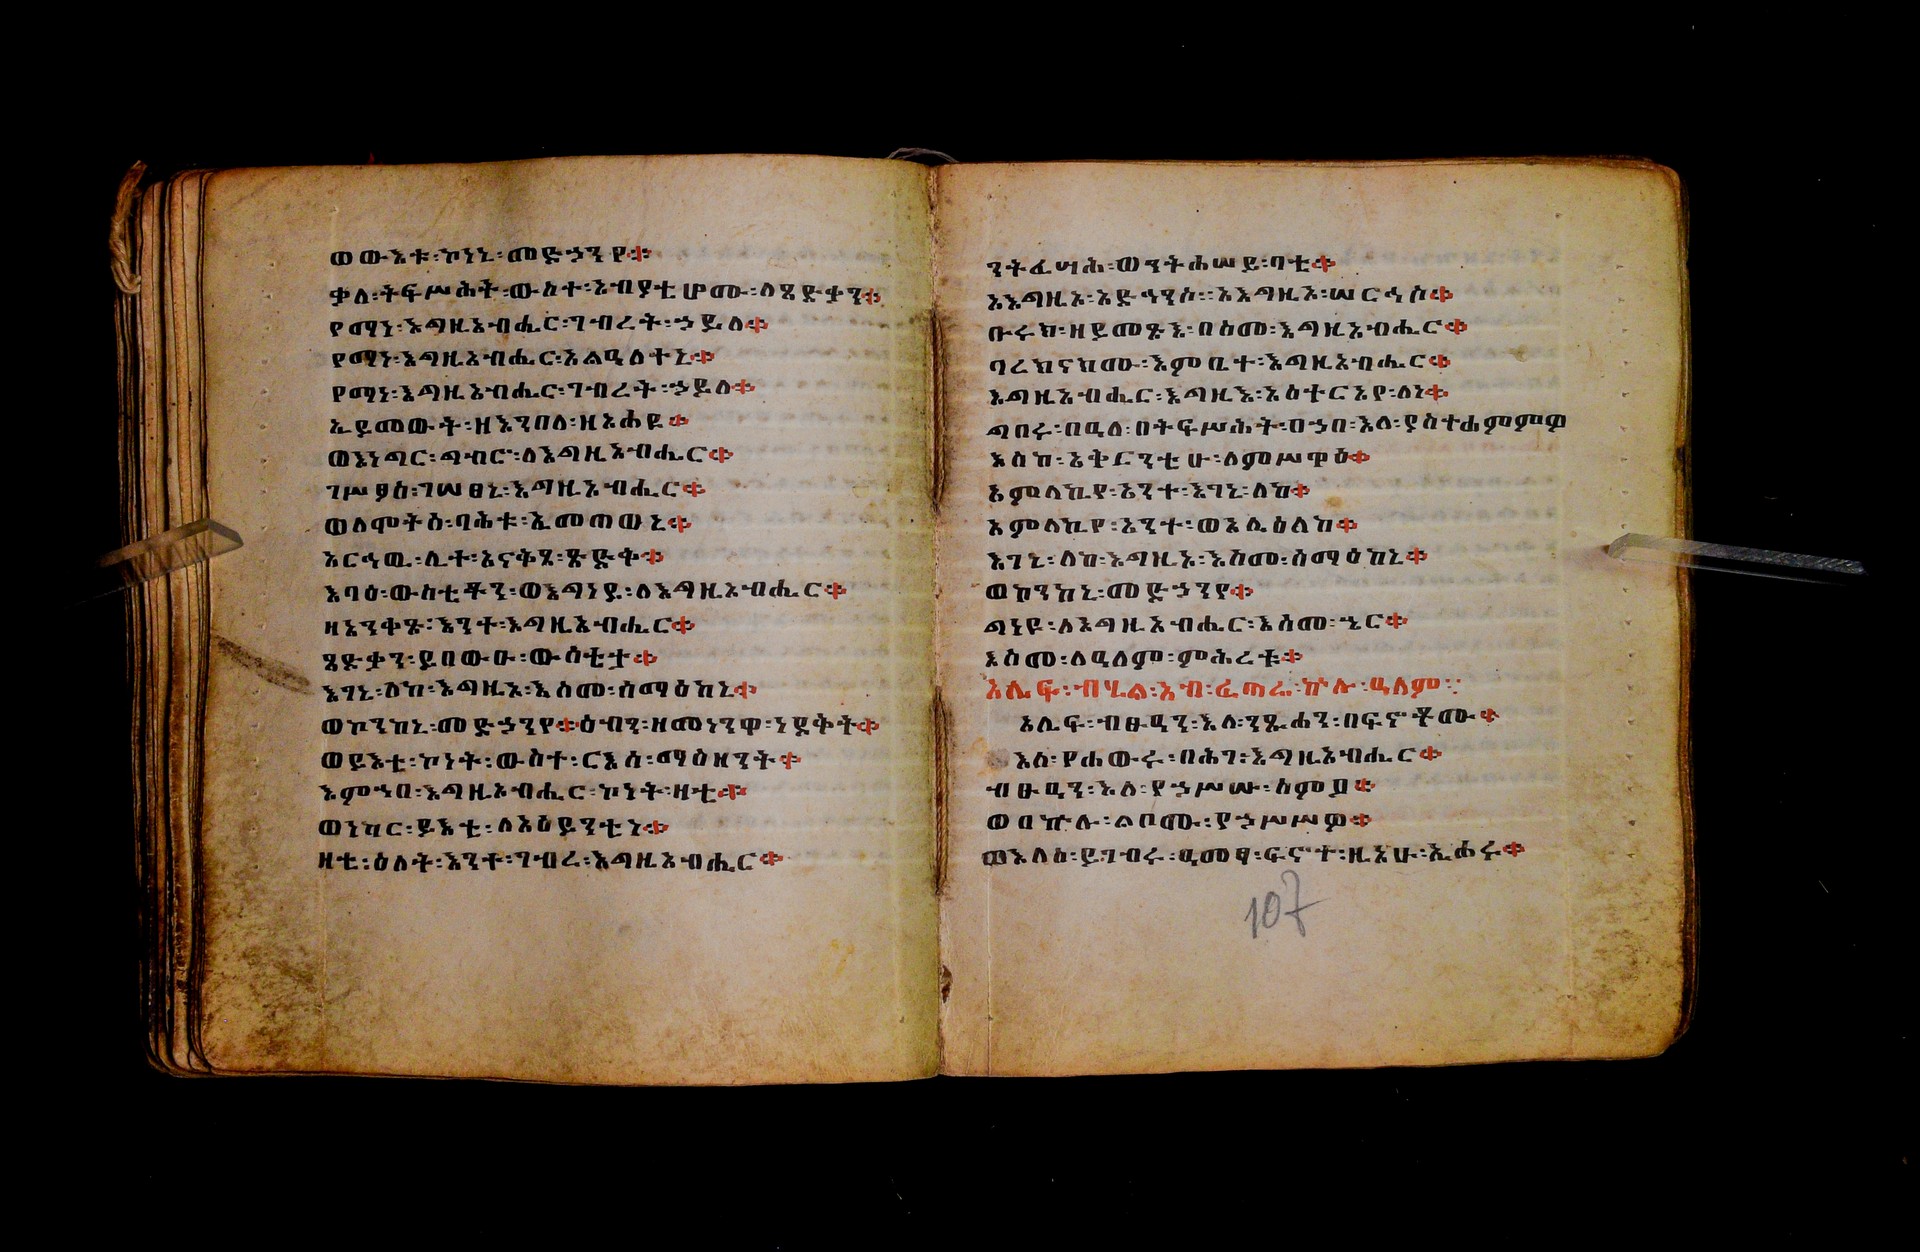 ወውእቱ፡ኮነኒ፡መድኃንየ።
ቃለ፡ትፍሥሕት፡ውስተ፡አብያቲሆሙ፡ለጻድቃን።
የማነ፡እግዚአብሔር፡ገብረት፡ኃይለ።
የማነ፡እግዚአብሔር፡አልዓለተኒ።
የማነ፡እግዚአብሔር፡ገብረት፡ኃይለ።
ኢይመውት፡ዘእንበለ፡ዘአሐዩ።
ወእነግር፡ግብሮ፡ለእግዚአብሔር።
ገሥፆስ፡ገሠፀኒ፡እግዚአብሔር።
ወለሞትሰ፡ባሕቱ፡ኢመጠወኒ።
አርኅዉ፡ሊተ፡አናቅጸ፡ጽድቅ።
እባዕ፡ውስቴቶን፡ወእግነይ፡ለእግዚአብሔር።
ዛአንቀጽ፡እንተ፡እግዚአብሔር።
ጻድቃን፡ይበውኡ፡ውስቴታ።
እገኒ፡ለከ፡እግዚኦ፡እስመ፡ሰማዕከኒ።
ወኮንከኒ፡መድኃንየ።ዕብን፡ዘመነንዋ፡ነደቅት።
ወይእቲ፡ኮነት፡ውስተ፡ርእሰ፡ማዕዘንት።
እምኀበ፡እግዚአብሔር፡ኮነት፡ዛቲ።
ወነካር፡ይእቲ፡ለአዕይንቲነ።
ዛቲ፡ዕለት፡እንተ፡ገብረ፡እግዚአብሔር።
ንትፈሣሕ፡ወንትሐሠይ፡ባቲ።
እእግዚኦ፡አድኅንሶ፡፡እእግዚኦ፡ሠርኅሶ።
ቡሩክ፡ዘይመጽእ፡በስመ፡እግዚአብሔር።
ባረክናክሙ፡እምቤተ፡እግዚአብሔር።
እግዚአብሔር፡እግዚእ፡አስተርአየ፡ለነ።
ግበሩ፡በዓለ፡በትፍሥሕት፡በኀበ፡እለ፡ያስተሐምምዎ
እስከ፡አቅርንቲሁ፡ለምሥዋዕ።
አምላኪየ፡አንተ፡እገኒ፡ለከ።
አምላኪየ፡አንተ፡ወኣሌዕለከ።
እገኒ፡ለከ፡እግዚኦ፡እስመ፡ሰማዕከኒ።
ወኮንከኒ፡መድኃንየ።
ግነዩ፡ለእግዚአብሔር፡እስመ፡ኄር።
እስመ፡ለዓለም፡ምሕረቱ።
አሌፍ፡ብሂል፡አብ፡ፈጣሬ፡ኵሉ፡ዓለም፡፡
አሌፍ፡ብፁዓን፡እለ፡ንጹሐን፡በፍኖቶሙ።
እለ፡የሐውሩ፡በሕገ፡እግዚአብሔር።
ብፁዓን፡እለ፡ያኃሥሡ፡ስምዖ።
ወበኵሉ፡ልቦሙ፡ያኃሥሥዎ።
ወአለሰ፡ይገብሩ፡ዓመፃ፡ፍኖተ፡ዚአሁ፡ኢሖሩ።
107